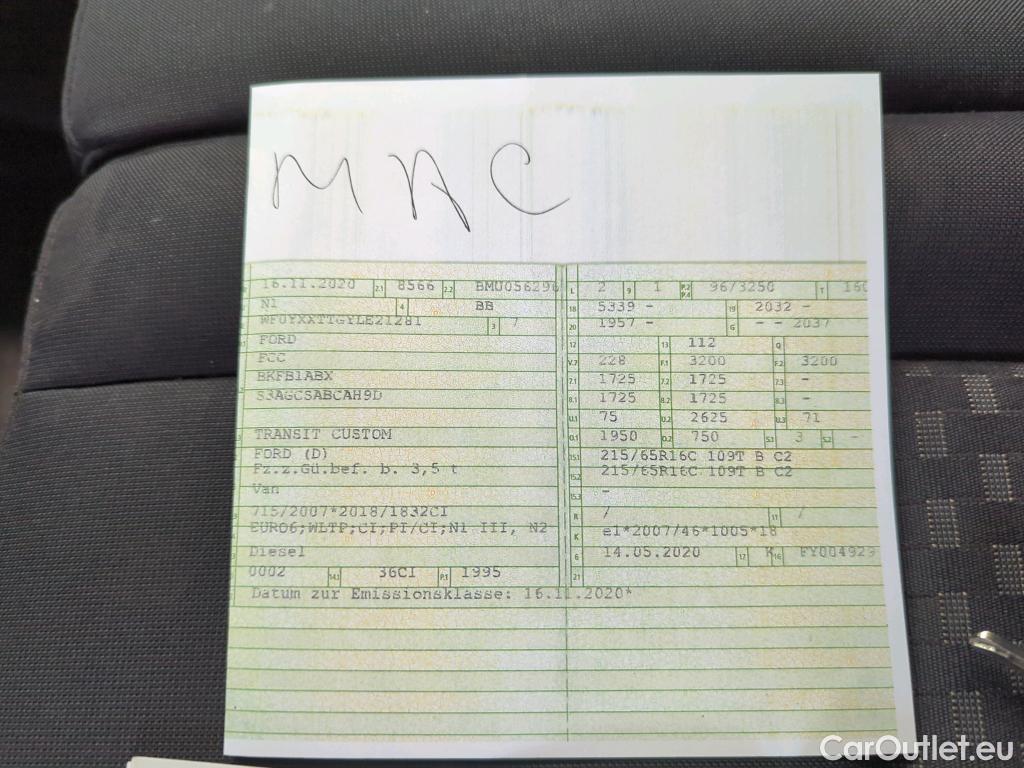 MAC
16.11.2020 2.1 8566 2.2 BMU056296 L 2 9 1 P.2 P.4 96/3250 T 160
N1 4 BB 18 5339 - 19 2032 -
WF0YXXTTGYLE21281 3 7 20 1957 - G - - 2037
FORD 12 13 112 Q
FCC V.7 228 F.1 3200 F.2 3200
BKFB1ABX 7.1 1725 7.2 1725 7.3 -
S3AGCSABCAH9D 8.1 1725 8.2 1725 8.3 -
U.1 75 U.2 2625 U.3 71
TRANSIT CUSTOM O.1 1950 O.2 750 S.1 3 S.2 -
FORD (D) 15.1 215/65R16C 109T B C2
Fz.z.Gü.bef. b. 3,5 t 15.2 215/65R16C 109T B C2
Van 15.3 -
715/2007*2018/1832CI R / 11 /
EURO6;WLTP;CI;PI/CI;N1 III, N2 K e1*2007/46*1005*18
Diesel 6 14.05.2020 17 K 16 FY004929
0002 14.1 36CI P.1 1995 21
Datum zur Emissionsklasse: 16.11.2020*
CarOutlet.eu